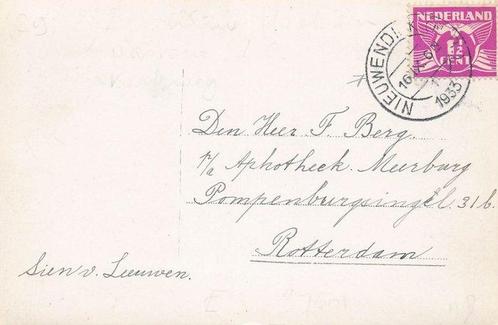 NEDERLAND
1½
CENT
NIEUWENDIJK
1933
Den Heer F. Berg.
P/a Aphotheek Meerburg
Pompenburgsingel 31b.
Rotterdam
Sien v. Leeuwen.